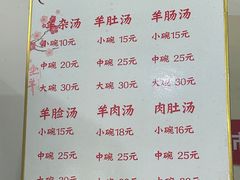 羊杂汤 羊肚汤 羊肠汤
小碗10元 小碗 15元 小碗 15元
中碗 20元 中碗 25元 中碗 25元
大碗 30元 大碗 30元 大碗 30元
羊脸汤 羊肉汤 肉肚汤
小碗15元 小碗18元 小碗16元
中碗 25元 中碗 25元 中碗 25元